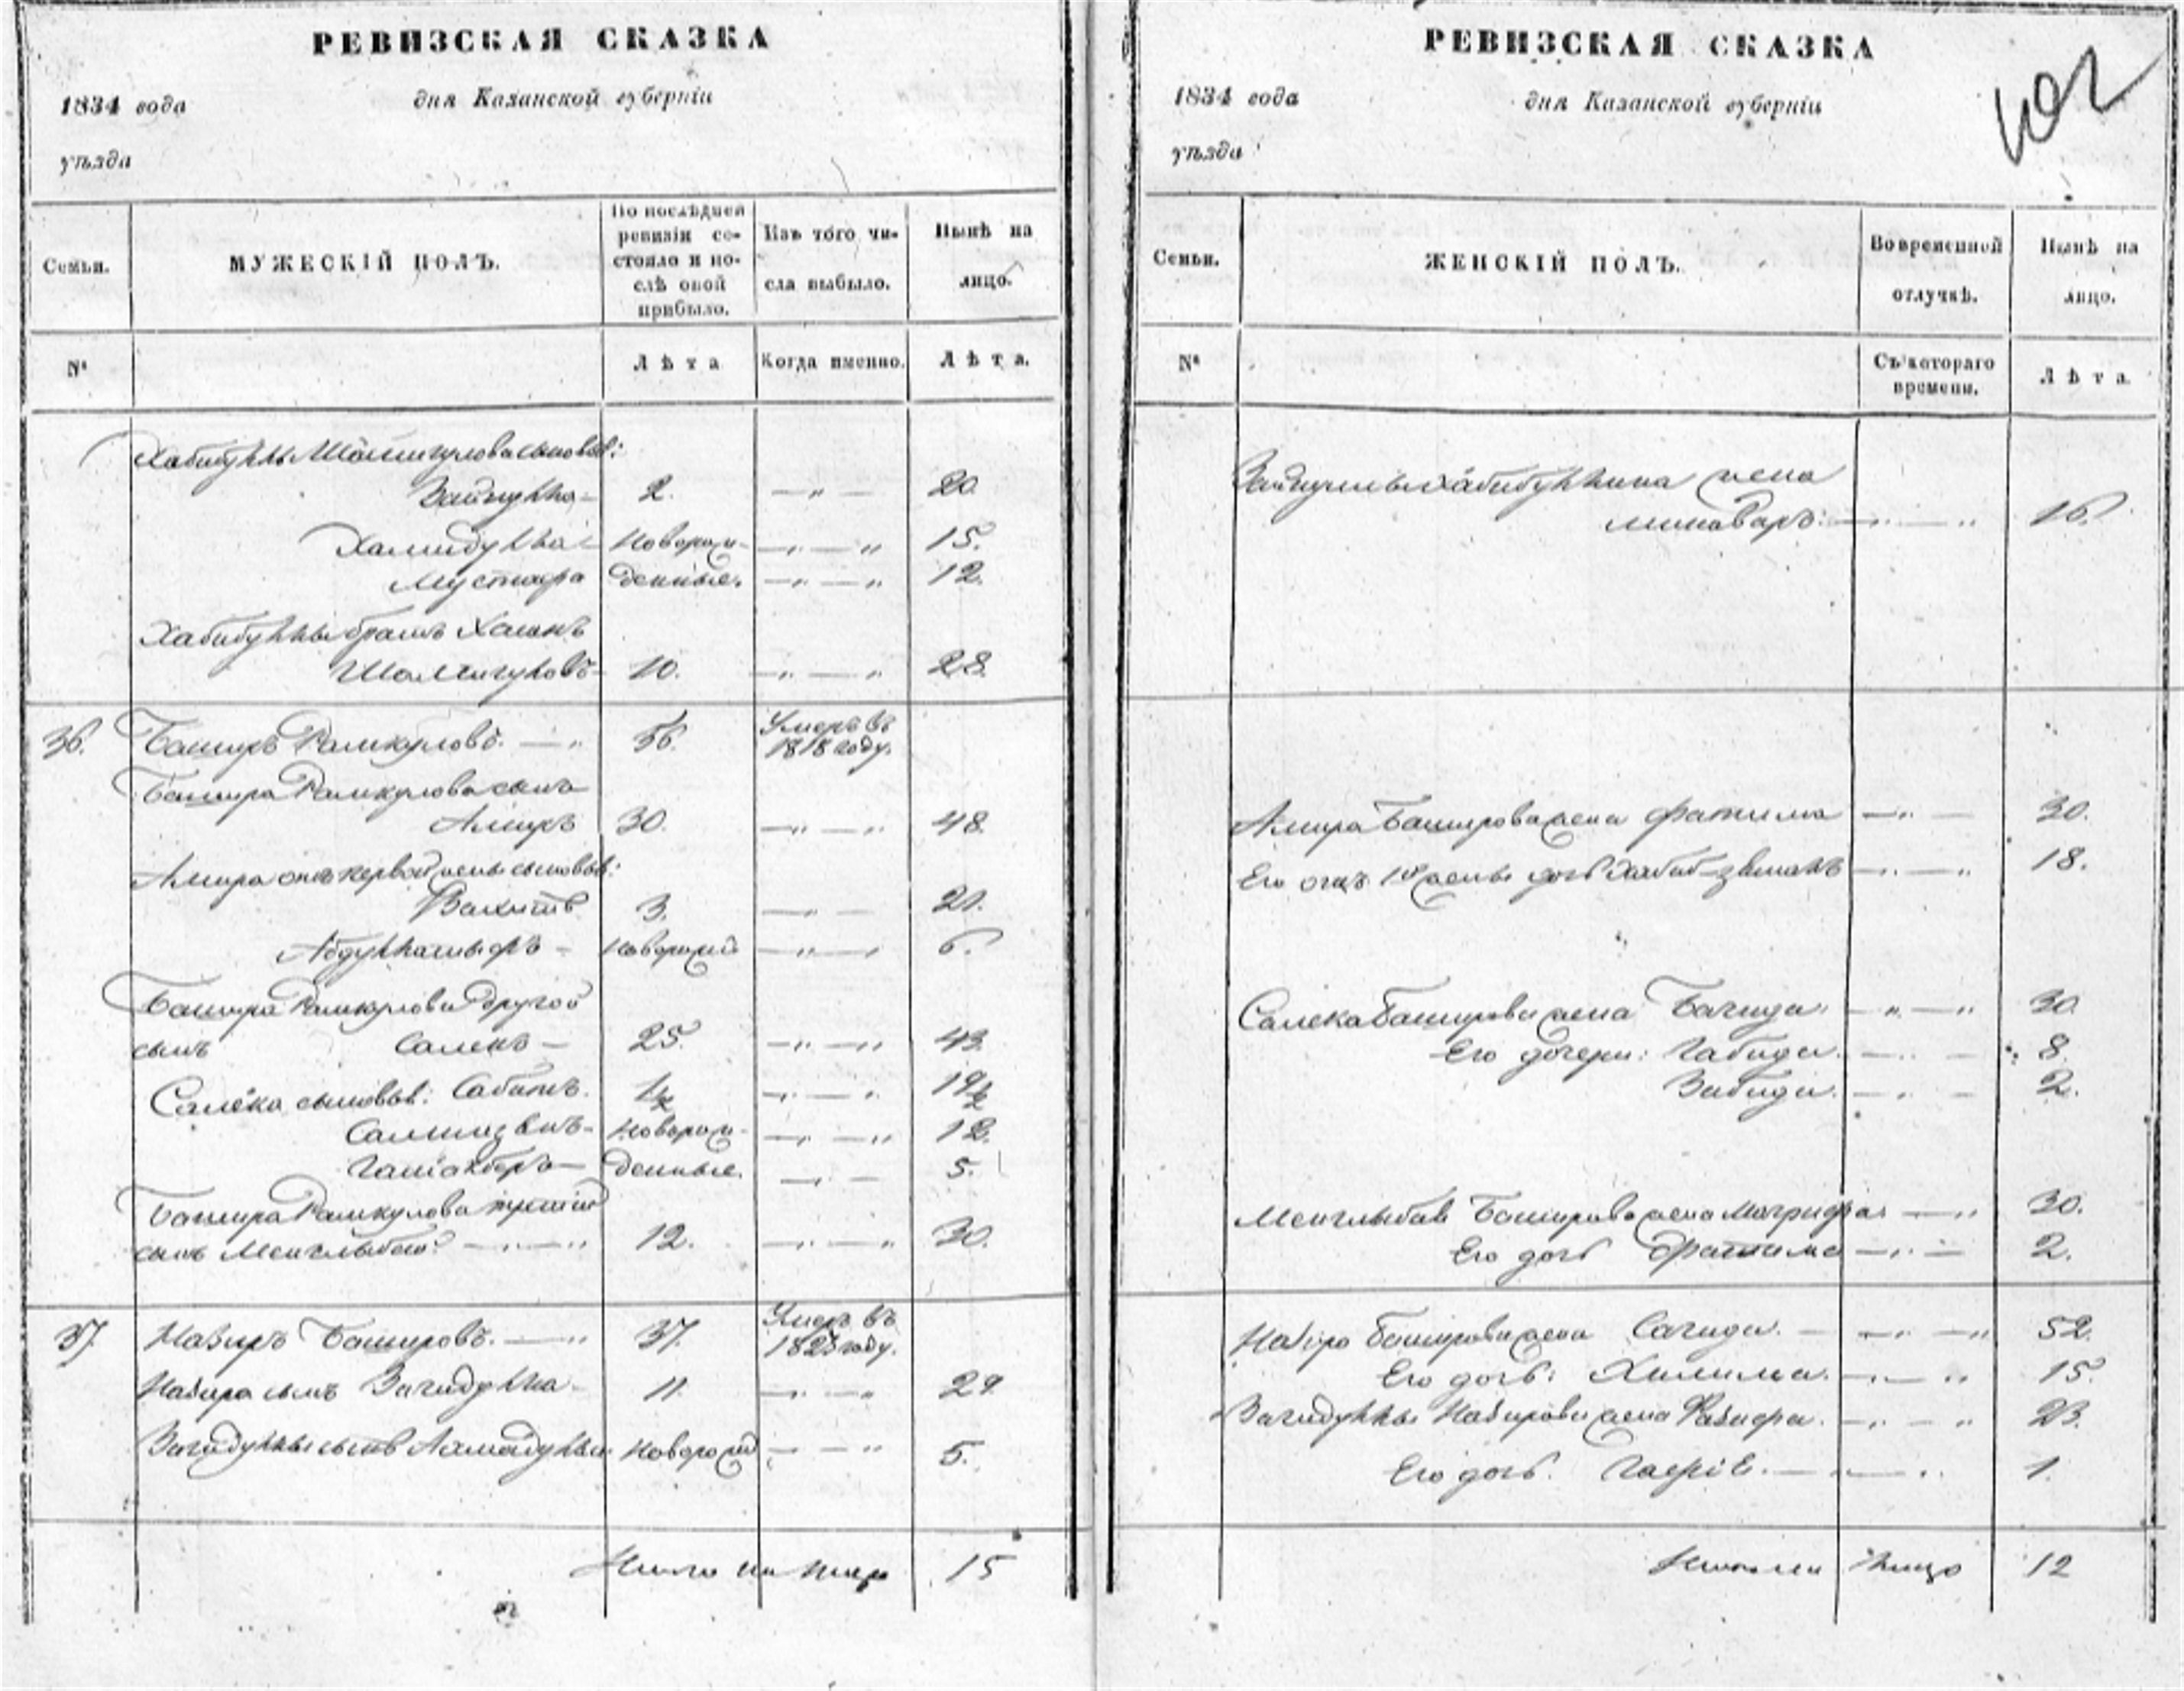 РЕВИЗСКАЯ СКАЗКА
1834 года дня Казанской губерніи
уѣзда
Семьи.
МУЖЕСКІЙ ПОЛЪ.
По послѣдней ревизіи состояло и послѣ оной прибыло.
Изъ того числа выбыло.
Нынѣ на лицо.
№
Лѣта
Когда именно.
Лѣта.
Хабибуллы сыновья:
2. 20
Хамидулла Новорож- 15.
Мустафа денные. 12.
Хабибуллы братъ
10. 28.
36. Баширъ Рамкуловъ. 56. Умеръ въ 1818 году.
Башира Рамкулова сынъ
Амиръ 30. 48.
Амира отъ первой жены сыновья:
Вахитъ 3. 21.
Новорожд 6.
Башира Рамкулова другой
сынъ Салекъ 25. 43.
Салека сыновья: Сабитъ. 1½ 19½
Новорож- 12.
денные. 5.
Башира Рамкулова третій
сынъ Менглыбай 12. 30.
37. Назиръ Башировъ. 37. Умеръ въ 1823 году.
Назира сынъ Загидулла 11. 29.
Загидуллы сынъ Ахмадулла Новорожд 5.
Итого на лицо 15
РЕВИЗСКАЯ СКАЗКА
102
1834 года дня Казанской губерніи
уѣзда
Семьи.
ЖЕНСКІЙ ПОЛЪ.
Во временной отлучкѣ.
Нынѣ на лицо.
№
Съ котораго времени.
Лѣта.
Хабибуллина жена
Минаваръ 16.
Амира Баширова жена Фатима 30.
Его отъ 1й жены дочь 18.
Салека Баширова жена Багида 30.
Его дочери: Габида 8.
Забида. 2.
Менглыбая Баширова жена Магрифа 30.
Его дочь Фатима 2.
Назира Баширова жена Сагида. 52.
Его дочь: Халима. 15.
Загидуллы Назирова жена 23.
Его дочь. 1.
Итого на лицо 12